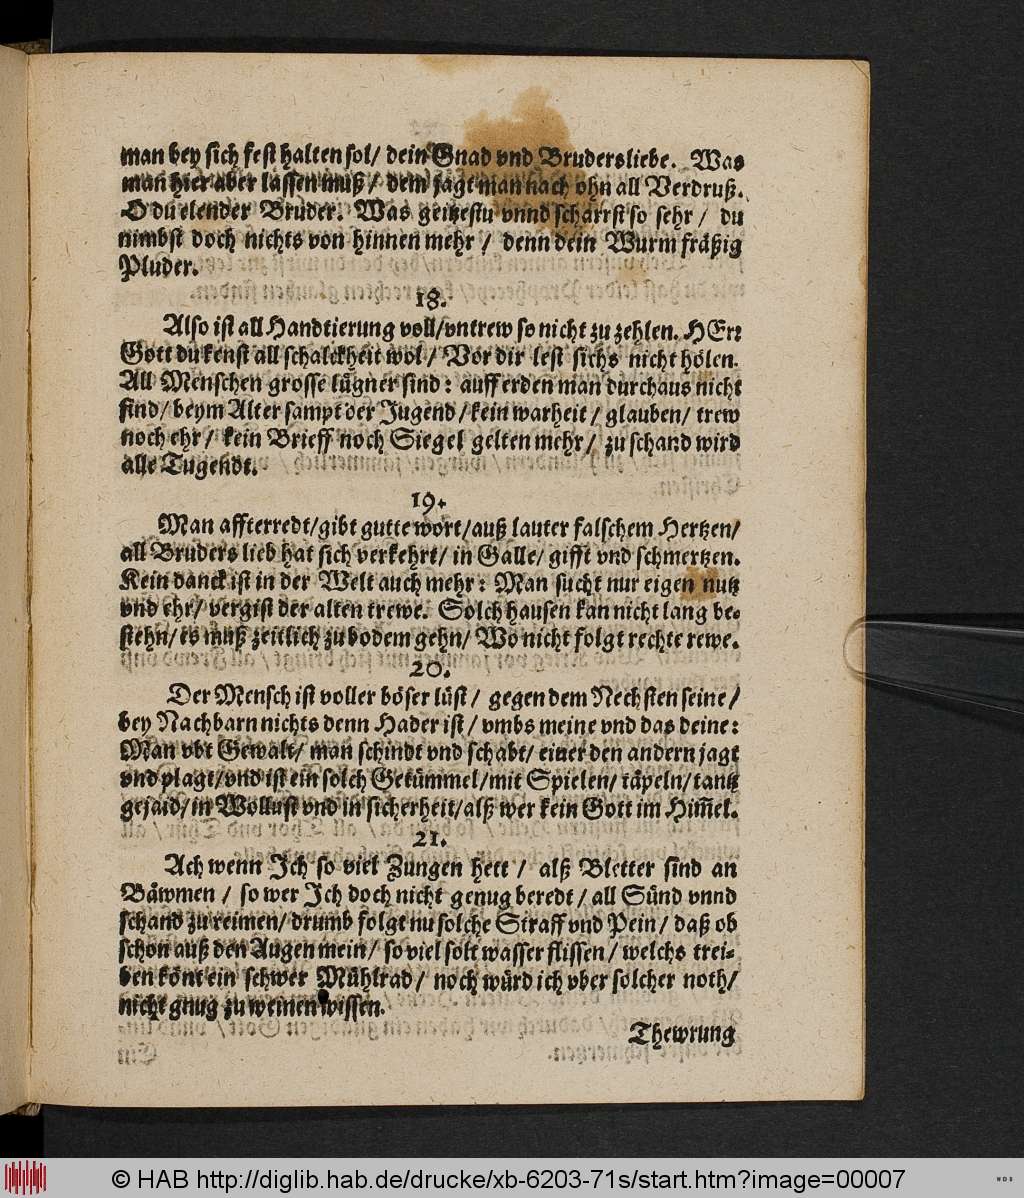 man bey sich fest halten sol/ dein Gnad vnd Brudersliebe. Was
man hier aber lassen muß/ dem jagt man nach ohn all Verdruß.
O du elender Bruder. Was geitzestu vnnd scharrst so sehr/ du
nimbst doch nichts von hinnen mehr/ denn dein Wurm fräßig
Pluder.
18.
Also ist all Handtierung voll/ vntrew so nicht zu zehlen. HErr
Gott du kenst all schalckheit wol/ Vor dir lest sichs nicht hölen.
All Menschen grosse lügner sind: auff erden man durchaus nicht
find/ beym Alter sampt der Jugend/ kein warheit/ glauben/ trew
noch ehr/ kein Brieff noch Siegel gelten mehr/ zu schand wird
alle Tugendt.
19.
Man affterredt/ gibt gutte wort/ auß lauter falschem Hertzen/
all Bruders lieb hat sich verkehrt/ in Galle/ gifft vnd schmertzen.
Kein danck ist in der Welt auch mehr: Man sucht nur eigen nutz
vnd ehr/ vergist der alten trewe. Solch hausen kan nicht lang be-
stehn/ es muß zeitlich zu bodem gehn/ Wo nicht folgt rechte rewe.
20.
Der Mensch ist voller böser lüst/ gegen dem Nechsten seine/
bey Nachbarn nichts denn Hader ist/ vmbs meine vnd das deine:
Man vbt Gewalt/ man schindt vnd schabt/ einer den andern jagt
vnd plagt/ vnd ist ein solch Getümmel/ mit Spielen/ täpeln/ tantz
gejaid/ in Wollust vnd in sicherheit/ alß wer kein Gott im Him̃el.
21.
Ach wenn Jch so viel Zungen hett/ alß Bletter sind an
Bäwmen/ so wer Jch doch nicht genug beredt/ all Sünd vnnd
schand zu reimen/ drumb folgt nu solche Straff vnd Pein/ daß ob
schon auß den Augen mein/ so viel solt wasser flissen/ welchs trei-
ben könt ein schwer Mühlrad/ noch würd ich vber solcher noth/
nicht gnug zu weinen wissen.
Thewrung
© HAB http://diglib.hab.de/drucke/xb-6203-71s/start.htm?image=00007